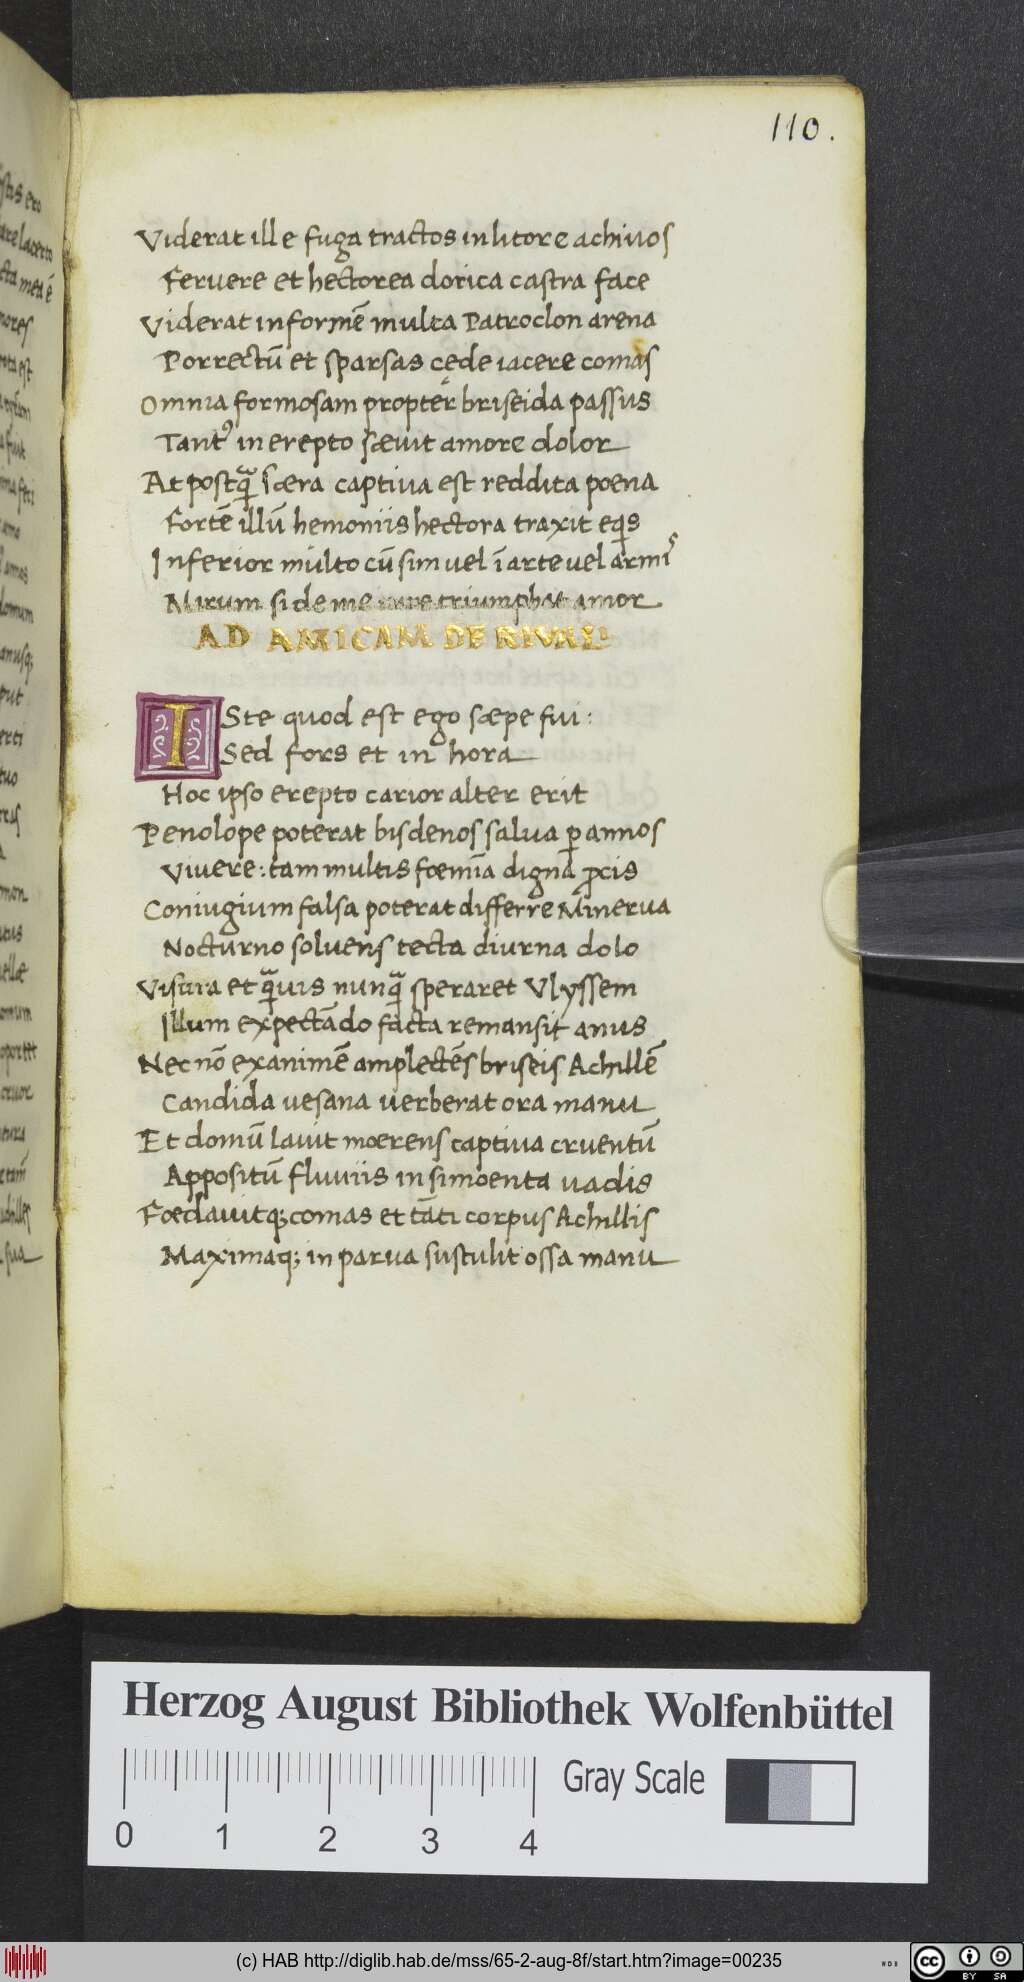 110.
Viderat ille fuga tractos in litore achiuos
Feruere et hectorea dorica castra face
Viderat informē multa Patroclon arena
Porrectū et sparsas cęde iacere comas
Omnia formosam propter briseida passus
Tantꝰ in erepto sæuit amore dolor
At postꝗ̃ særa captiua est reddita poena
Fortē illū hemoniis hectora traxit eqis
Inferior multo cū sim uel ī arte uel armis
Mirum si de me iure triumphat amor
AD AMICAM DE RIVALI
ISte quod est ego sæpe fui:
Sed fors et in hora
Hoc ipso erepto carior alter erit
Penolope poterat bisdenos salua ꝑ annos
Viuere: tam multis foemīa digna ꝓcis
Coniugium falsa poterat differre Minerua
Nocturno soluens texta diurna dolo
Visura et ꝗ̃uis nunꝗ̃ speraret Vlyssem
Illum expectādo facta remansit anus
Nec nō exanimē amplectēs briseis Achillē
Candida uesana uerberat ora manu
Et domū lauit moerens captiua cruentū
Appositū fluuiis in simoenta uadis
Foedauitq; comas et tāti corpus Achillis
Maximaq; in parua sustulit ossa manu
Herzog August Bibliothek Wolfenbüttel
Gray Scale
0 1 2 3 4
(c) HAB http://diglib.hab.de/mss/65-2-aug-8f/start.htm?image=00235
cc BY SA